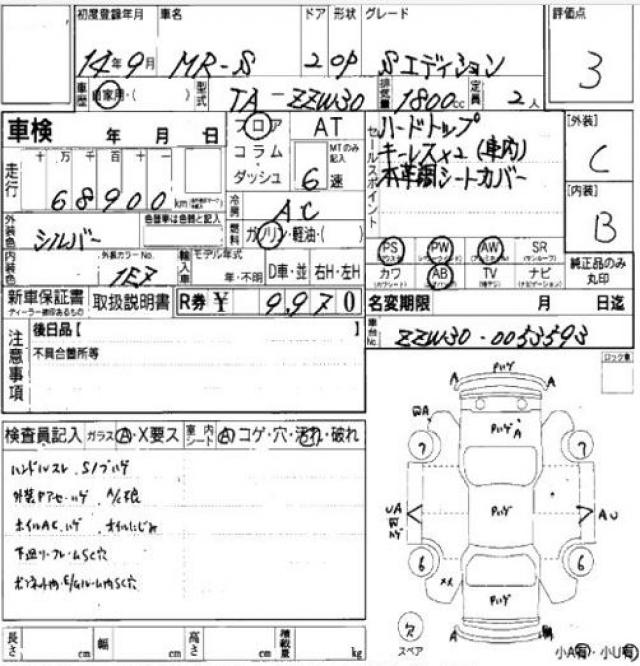 初度登録年月 車名 ドア 形状 グレード 評価点
14年9月 MR-S 2 OP Sエディション 3
車歴 自家用・( ) 型式 TA-ZZW30 排気量 1800cc 定員 2人
車検 年 月 日
フロア AT
コラム・ダッシュ MTのみ記入 6速
セールスポイント
ハードトップ
キーレス×2(車内)
本革調シートカバー
[外装] C
[内装] B
走行 十万千百十一
68900 km
冷房 AC
燃料 ガソリン・軽油・( )
外装色 シルバー 色替車は色替と記入
内装色 外装カラーNo. 1E7
輸入車 モデル年式 年・不明 D車・並 右H・左H
PS PW AW SR (サンルーフ)
カワ AB TV ナビ (ナビゲーション)
純正品のみ丸印
新車保証書 取扱説明書 R券 ¥ 9,970
ディーラー捺印あるもの
名変期限 月 日迄
車台No. ZZW30-0053593
注意事項
後日品【 】
不具合箇所等
ロック車
検査員記入 ガラス A・X要ス 室内シート A コゲ・穴・汚れ・破れ
ハンドルスレ、S/Bハゲ
外装Pアセ・ハゲ A/C不良
ホイルAC、ハゲ オイルにじみ
下廻り・フレームSC穴
ボンネット内・E/Gルーム内SC穴
A パハゲ A
パハゲ A
7 7
UA パハゲ AU
6 6
XX
パハゲ
欠 A
スペア
長さ cm 幅 cm 高さ cm 積載量 kg
小A有・小U有